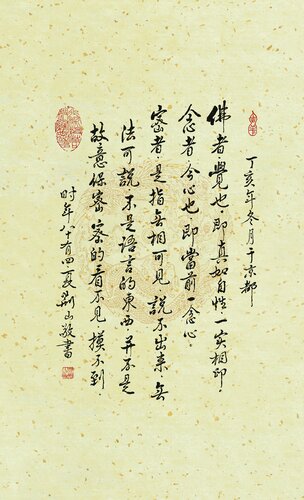 丁亥年冬月于京都
佛者覺也·即真如自性一实相印·
念者今心也·即當前一念心·
密者·是指無相可見說不出来·無
法可說不是語言的東西并不是
故意保密·密的看不見摸不到
时年八十有四夏荆山敬書